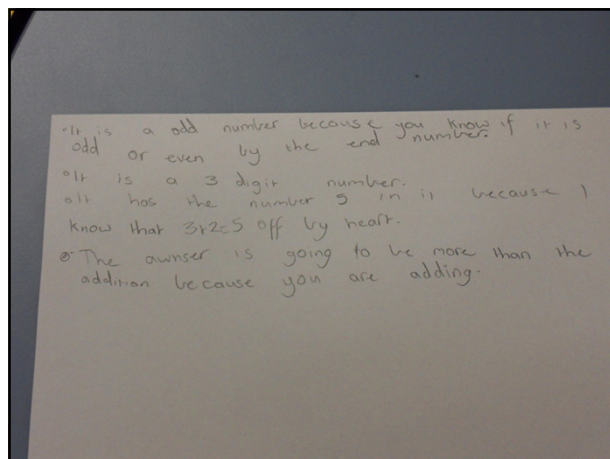 •It is a odd number because you know if it is
odd or even by the end number.
•It is a 3 digit number.
•It has the number 5 in it because I
know that 3+2=5 off by heart.
•The awnser is going to be more than the
addition because you are adding.